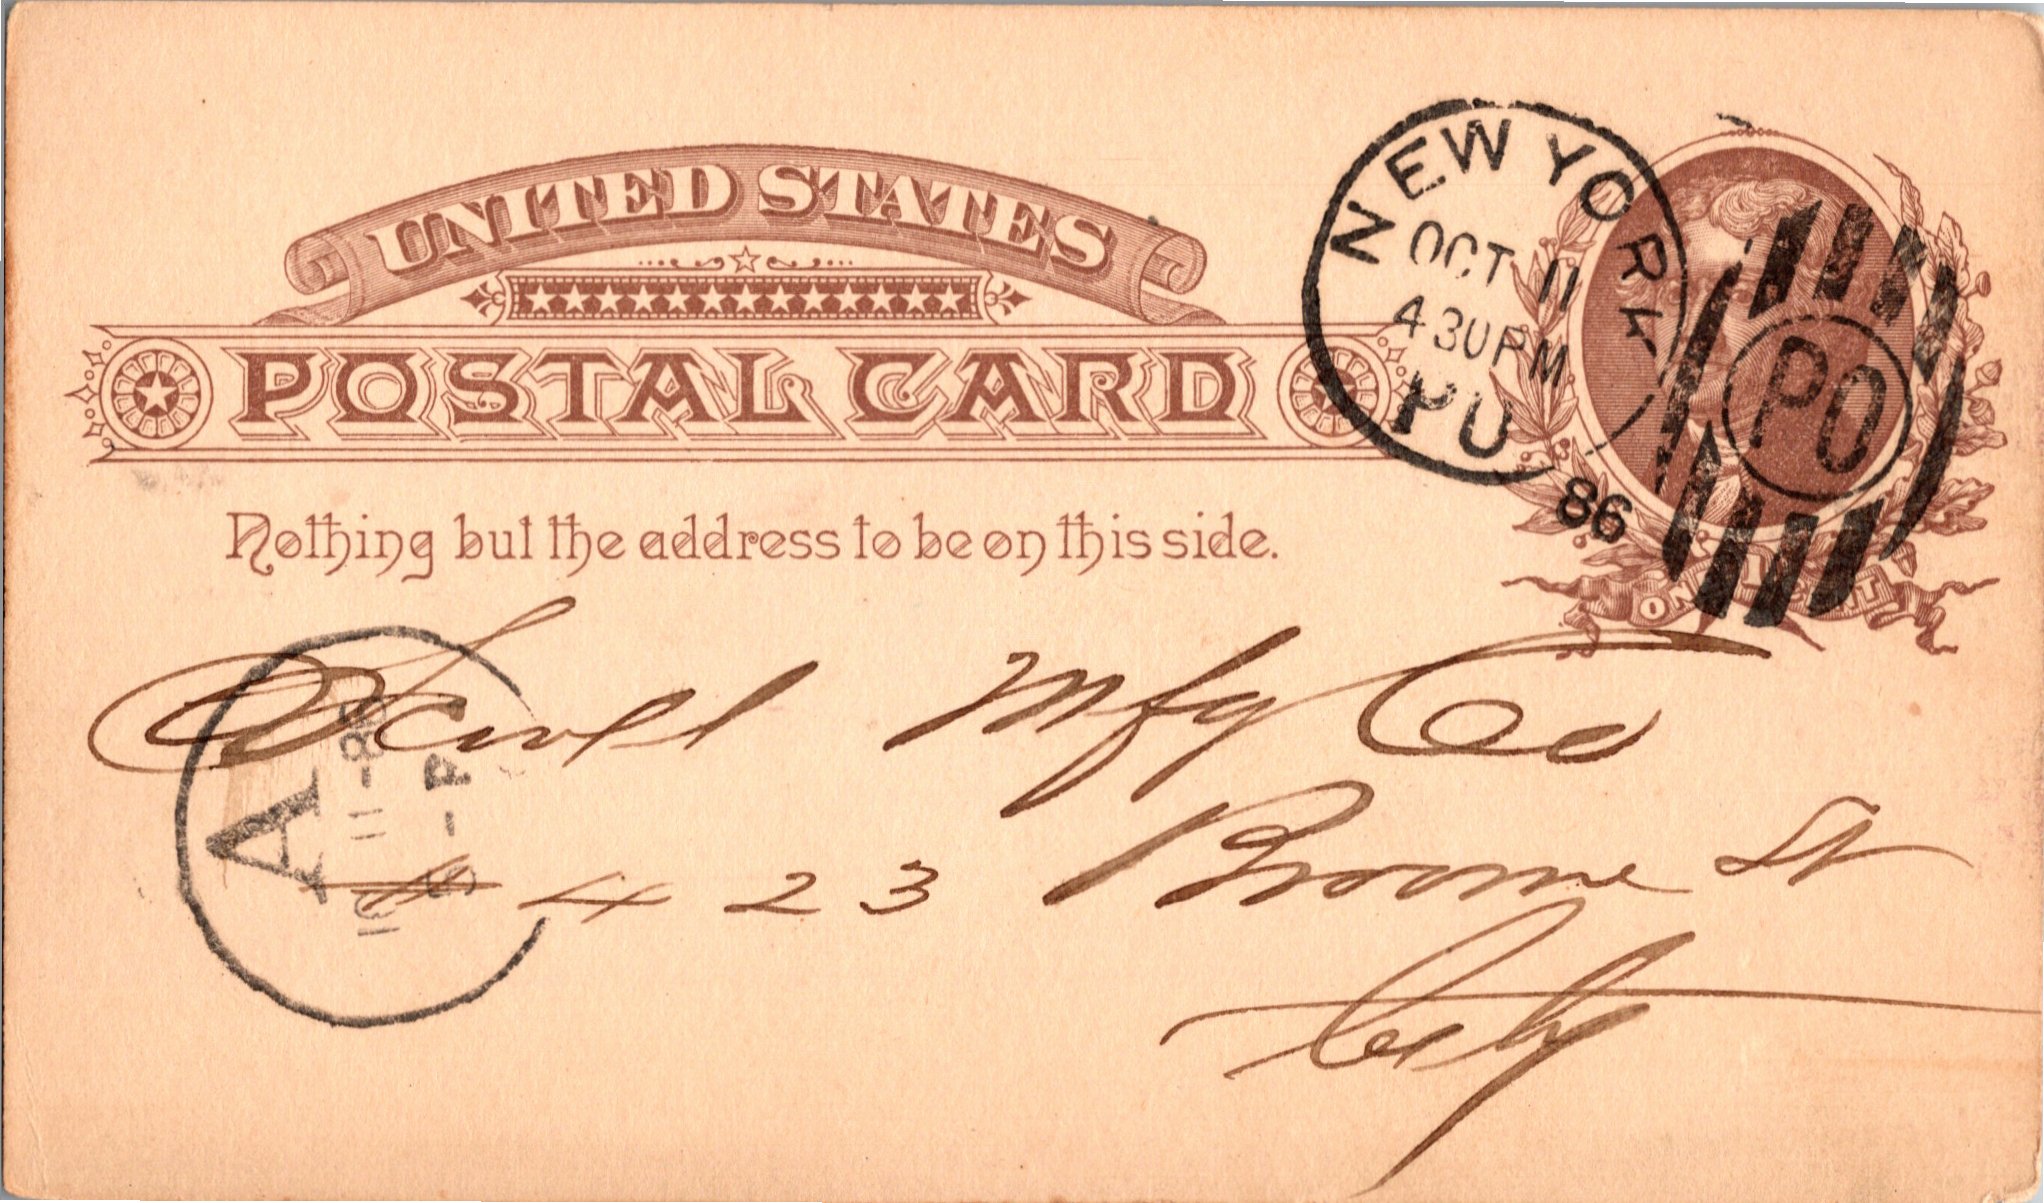 UNITED STATES
POSTAL CARD
Nothing but the address to be on this side.
NEW YORK
OCT 11
430PM
PO
86
PO
ONE CENT
Mfg Co
423 Broome St
City
A
10-11-86
-P